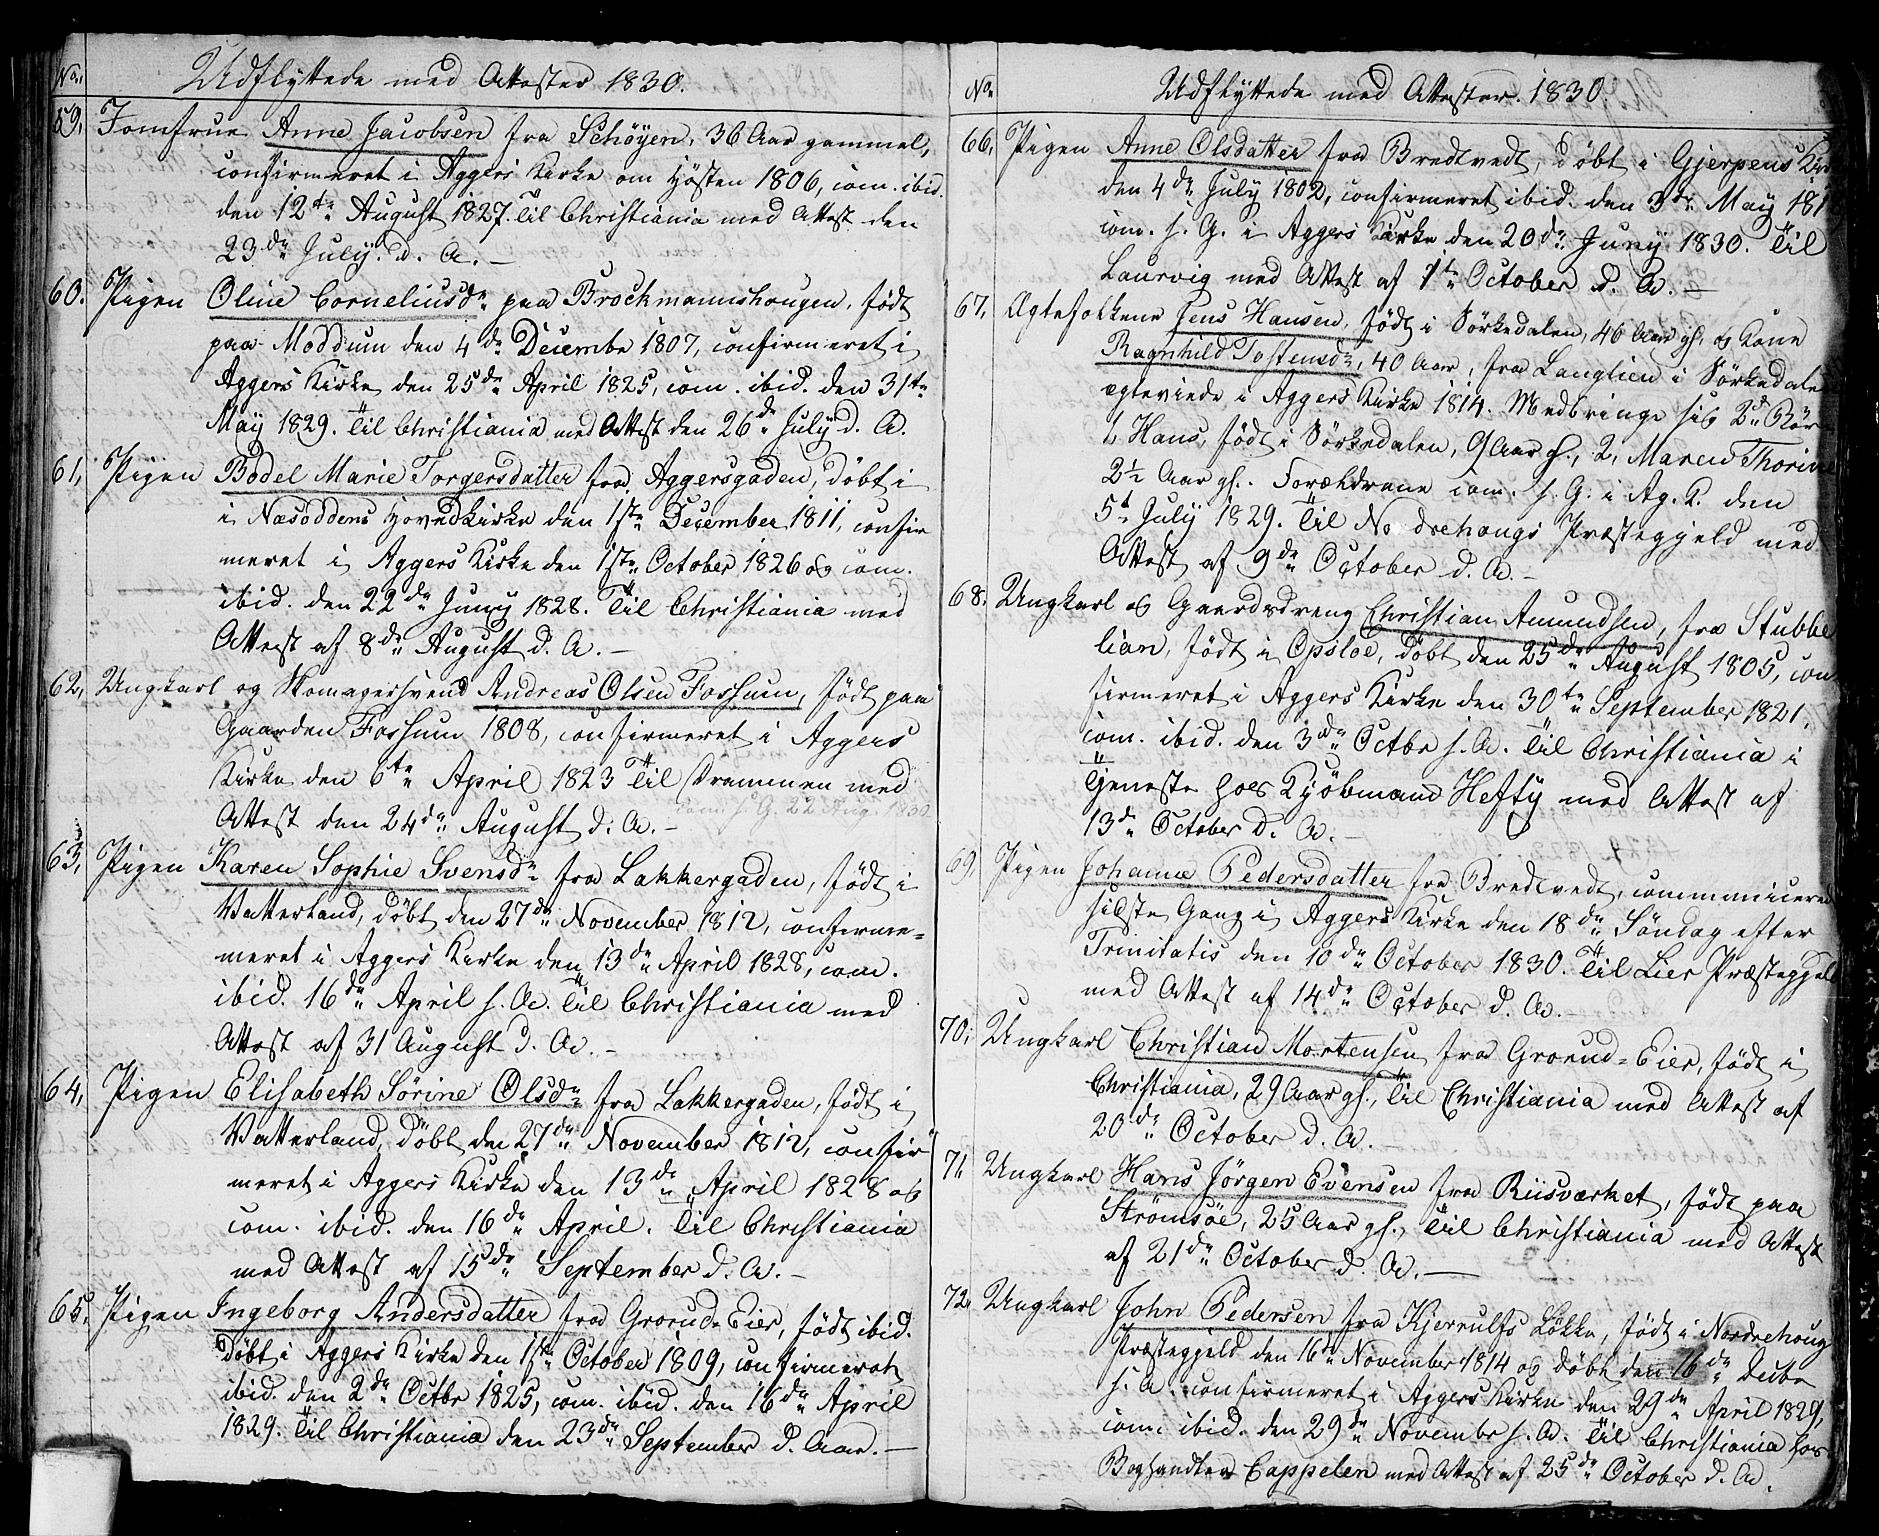 No. Udflyttede med Attester 1830.
59, Jomfrue Anne Jacobsen fra Schøyen, 36 Aar gammel,
confirmeret i Aggers Kirke om Høsten 1806, com. ibid.
den 12te August 1827. Til Christiania med Attest den
23de July d. A. –
60. Pigen Oline Corneliusdr paa Brockmannshougen, født
paa Moddum den 4de Decembr 1807, confirmeret i
Aggers Kirke den 25de April 1825, com. ibid. den 31te
May 1829. Til Christiania med Attest den 26de July d. A.
61, Pigen Bodel Marie Torgersdatter fra Aggersgaden, døbt i
i Næsoddens Hovedkirke den 1ste December 1811, confir
meret i Aggers Kirke den 1ste October 1826 og com.
ibid. den 22de Juny 1828. Til Christiania med
Attest af 8de August d. A. –
62, Ungkarl og Skomagersvend Andreas Olsen Fossum, født paa
Gaarden Fossum 1808, confirmeret i Aggers
Kirke den 6te April 1823 Til Drammen med
Attest den 24de August d. A. – com. s. G. 22 Aug. 1830
63, Pigen Karen Sophie Svensdr fra Lakkergaden, født i
Vatterland, døbt den 27de November 1812, confirme=
meret i Aggers Kirke den 13de April 1828, com.
ibid. 16de April s. A. Til Christiania med
Attest af 31 August d. A. –
64, Pigen Elisabeth Sørine Olsdr fra Lakkergaden, født i
Vatterland, døbt den 27de November 1812, confir
meret i Aggers Kirke den 13de April 1828 og
com. ibid. den 16de April. Til Christiania
med Attest af 15de September d. A. –
65, Pigen Ingeborg Andersdatter fra Grorud-Eier, født ibid.
døbt i Aggers Kirke den 1ste October 1809, confirmeret
ibid. den 2de Octbr 1825, com. ibid. den 16de April
1829. Til Christiania den 23de September d. Aar. –
No Udflyttede med Attester. 1830
66, Pigen Anne Olsdatter fra Bredtvedt, døbt i Gjerpens Kir
den 4de July 1802, confirmeret ibid. den 3de May 181
com. s. G. i Aggers Kirke den 20de Juny 1830. Til
Laurvig med Attest af 1te October d. A. –
67, Ægtefolkene Jens Hansen, født i Sørkedalen, 40 Aar gl. og Kone
Ragnhild Tostensdr, 40 Aar, fra Langlien i Sørkedale
egteviede i Aggers Kirke 1814. Medbringe sig 2de Børn
1, Hans, født i Sørkedalen, 9 Aar gl., 2, Maren Thorine
2½ Aar gl. Forældrene com. s. G. i Ag. K. den
5te July 1829. Til Nordrehougs Præstegjeld med
Attest af 9de October d. A. –
68, Ungkarl og Gaardsdreng Christian Amundsen, fra Stubbe
lian, født i Opsloe, døbt den 25de August 1805, con
firmeret i Aggers Kirke den 30te September 1821,
com. ibid. den 3de Octbr s. A. Til Christiania i
Tjeneste hos Kjøbmand Hefty med Attest af
13de October d. A. –
69, Pigen Johanne Pedersdatter fra Bredtvedt, communicered
sidste Gang i Aggers Kirke den 18de Søndag efter
Trinitatis den 10de October 1830. Til Lier Præstegjeld
med Attest af 14de October d. A. –
70, Ungkarl Christian Mortensen fra Grorud=Eier, født i
Christiania, 29 Aar gl., Til Christiania med Attest af
20de October d. A. –
71 Ungkarl Hans Jørgen Evensen fra Riisværket, født paa
Strømsøe, 25 Aar gl., Til Christiania med Attest
af 21de October d. A. –
72, Ungkarl John Pedersen fra Kjerrulfs Løkke, født i Nordrehoug
Præstegjeld den 16de November 1814 og døbt den 16de Decbr
s. A. confirmeret i Aggers Kirke den 29de April 1829,
com. ibid. den 29de Novembr s. A. Til Christiania hos
Boghandler Cappelen med Attest af 25de October d. A.